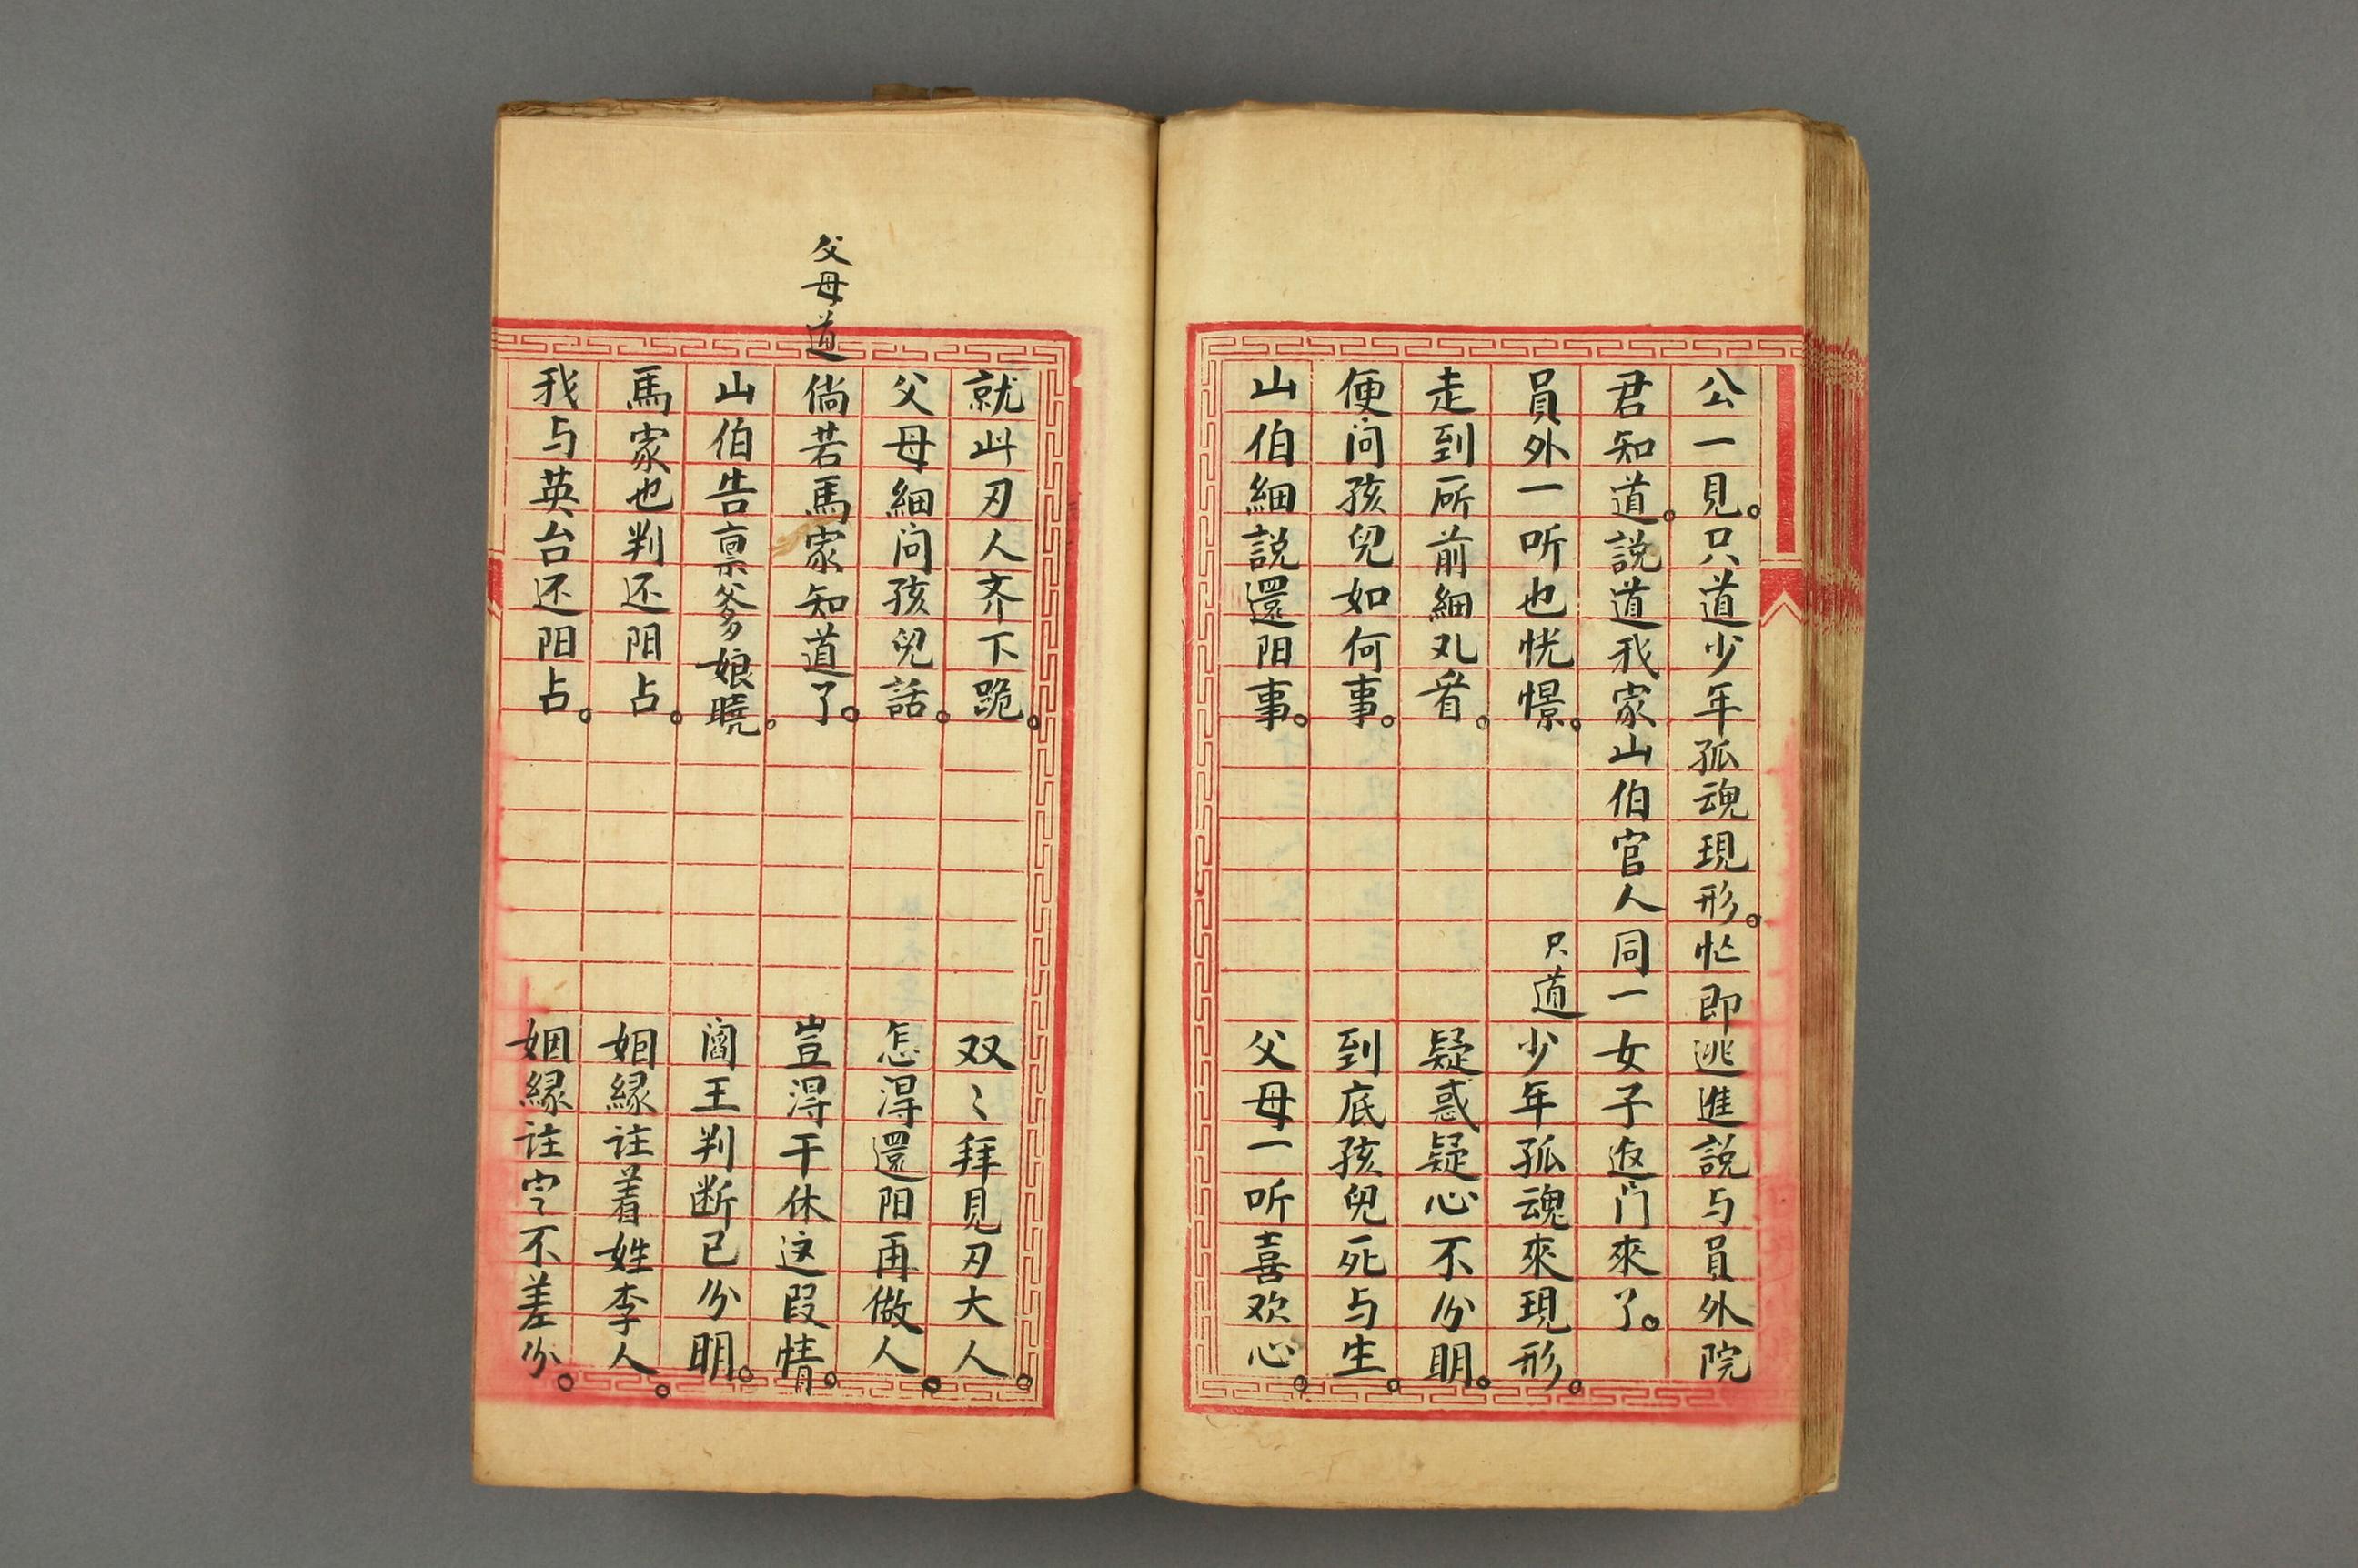 公一見。只道少年孤魂現形。忙即逃進說与員外院
君知道。說道我家山伯官人同一女子返门來了。
員外一听也恍憬。 只道少年孤魂來現形。
走到所前細丸看。 疑惑疑心不分明。
便问孩兒如何事。 到底孩兒死与生。
山伯細說還阳事。 父母一听喜欢心。
就此刃人齐下跪。 双〻拜見刃大人。
父母細问孩兒話。 怎淂還阳再做人。
父母道 倘若馬家知道了。 豈淂干休这叚情。
山伯告禀爹娘曉。 閻王判断已分明。
馬家也判还阳占。 姻緣註着姓李人。
我与英台还阳占。 姻緣註定不差分。